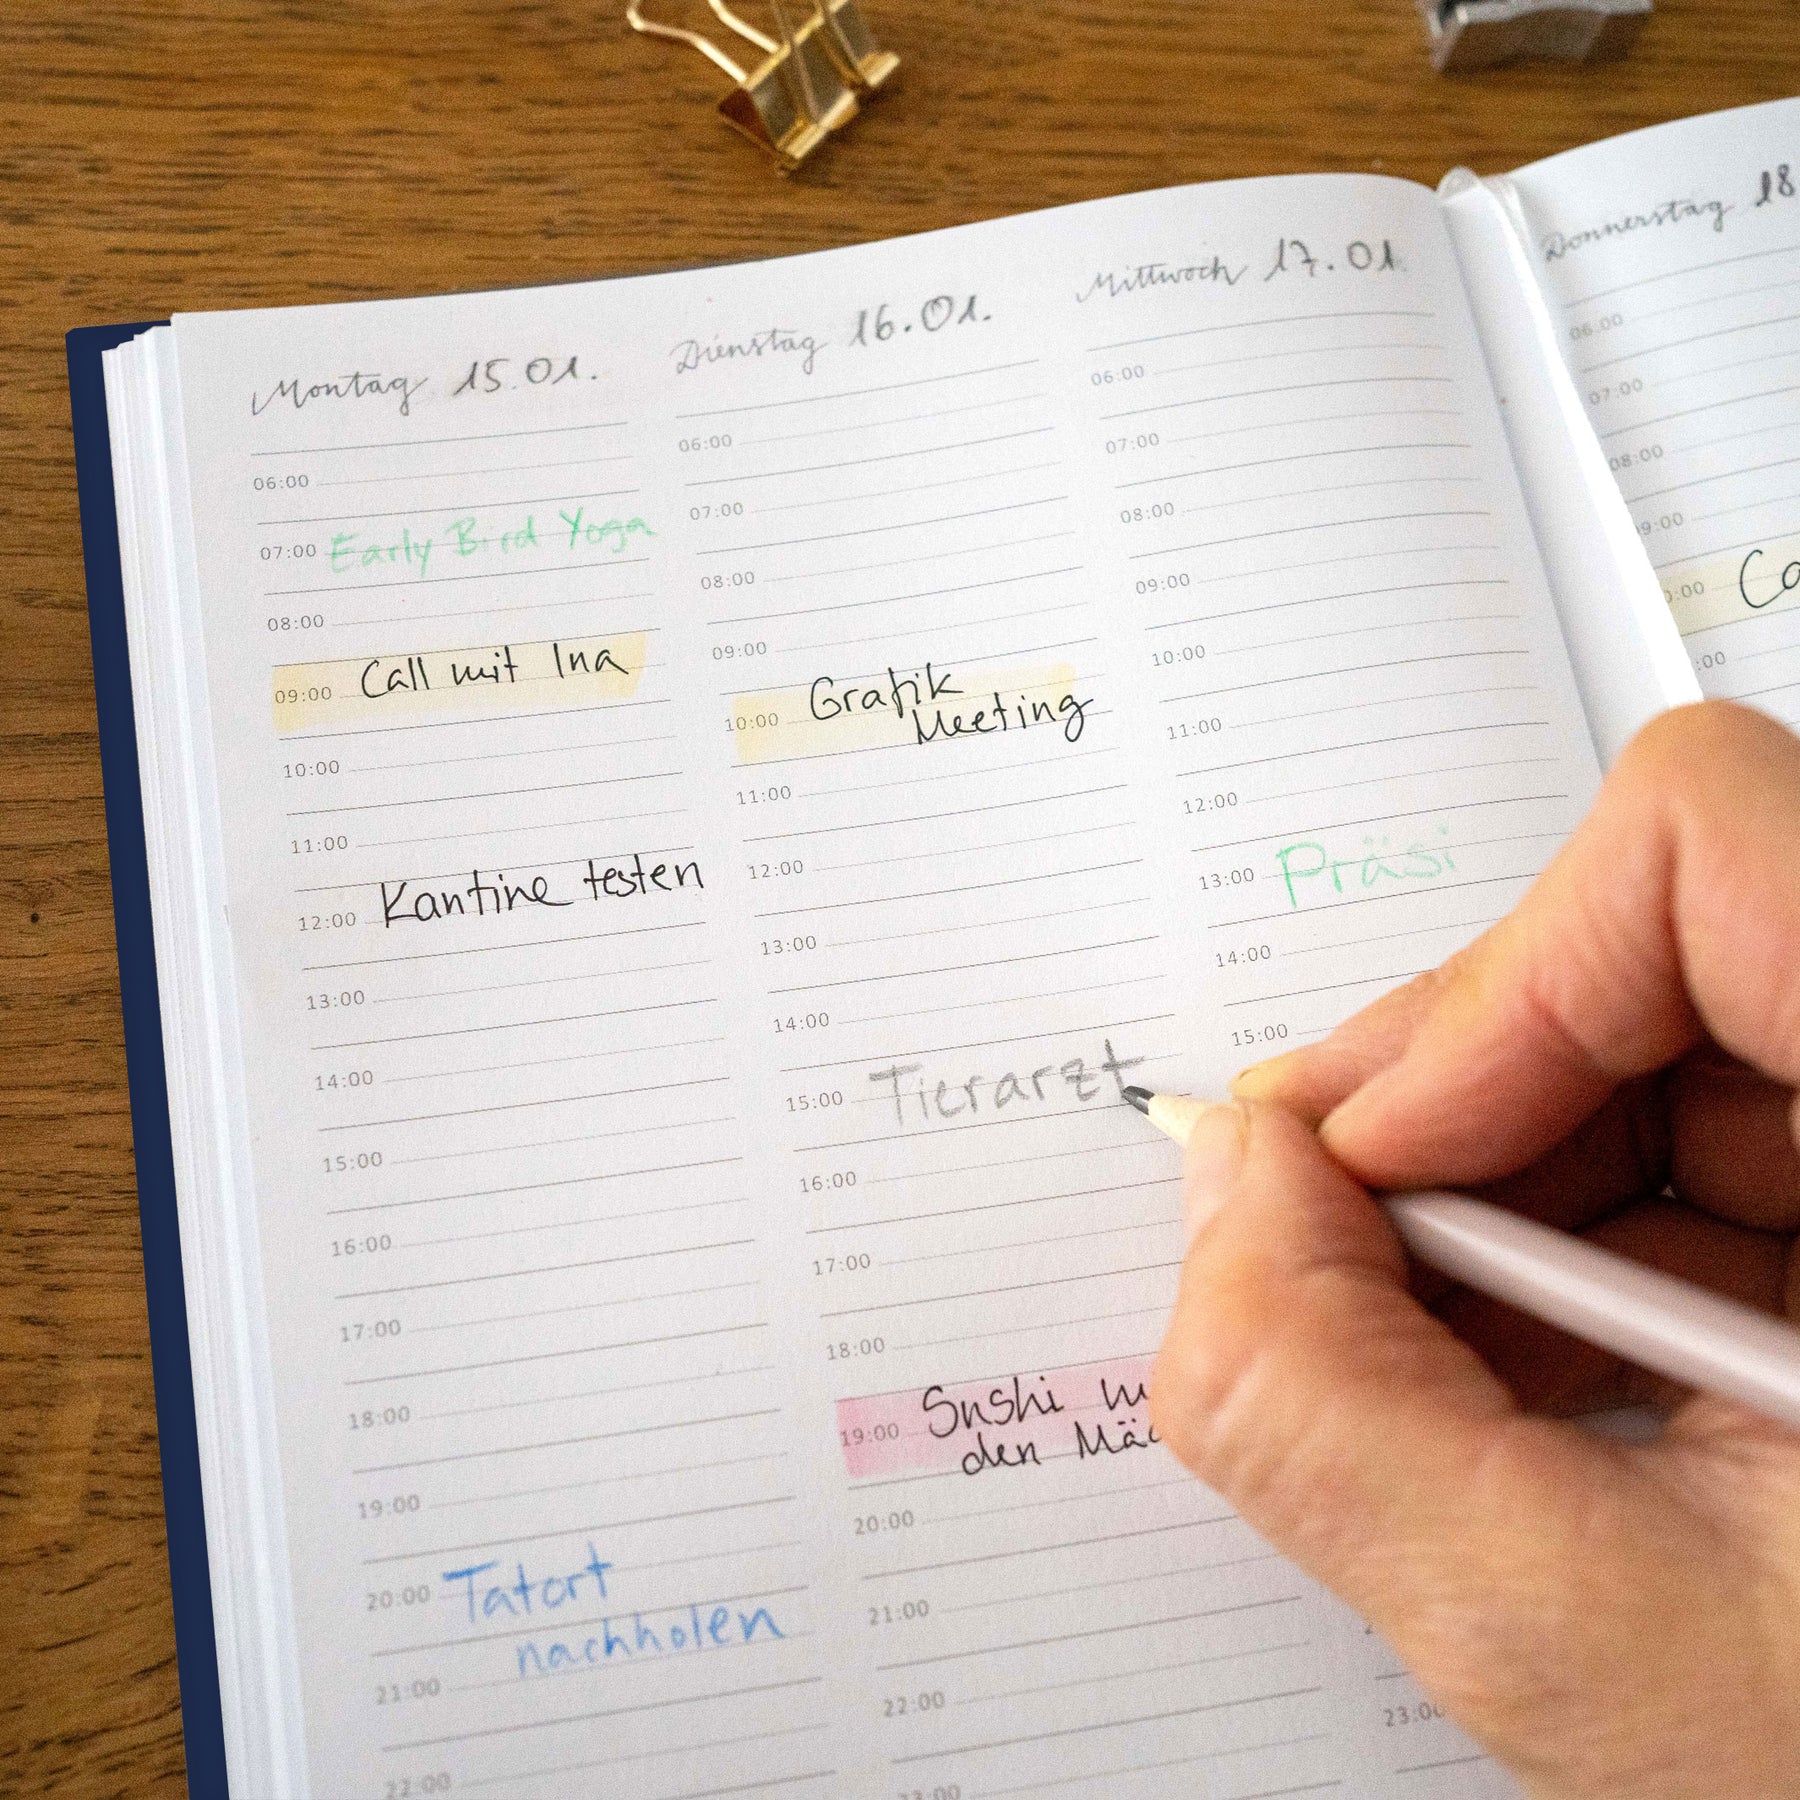 Montag 15.01.
06:00
07:00 Early Bird Yoga
08:00
09:00 Call mit Ina
10:00
11:00
12:00 Kantine testen
13:00
14:00
15:00
16:00
17:00
18:00
19:00
20:00 Tatort
nachholen
21:00
22:00
Dienstag 16.01.
06:00
07:00
08:00
09:00
10:00 Grafik
Meeting
11:00
12:00
13:00
14:00
15:00 Tierarzt
16:00
17:00
18:00
19:00 Sushi
den
20:00
21:00
22:00
23:00
Mittwoch 17.01.
06:00
07:00
08:00
09:00
10:00
11:00
12:00
13:00 Präsi
14:00
15:00
23:00
Donnerstag 18
06:00
07:00
08:00
09:00